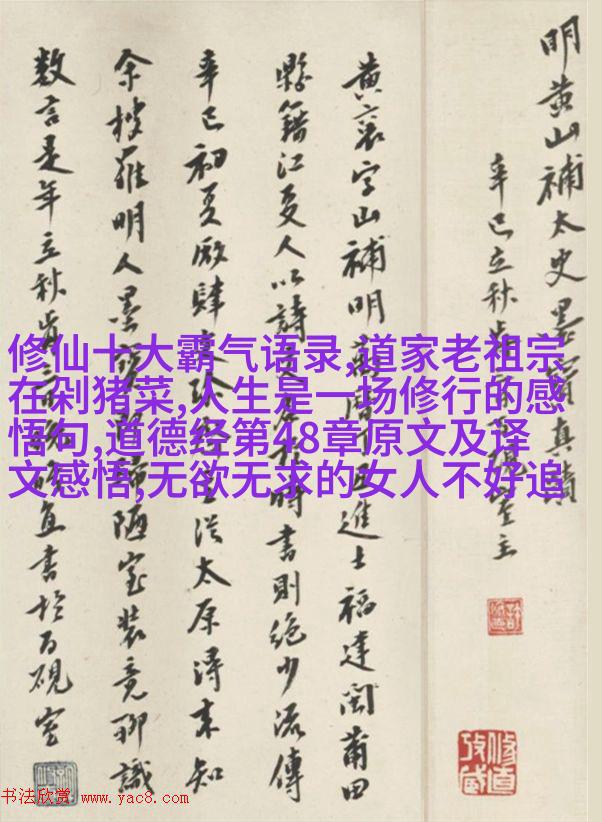 明黄山補太史墨寶真蹟
辛巳立秋硯室主
黄字山補明進士福建閩莆田
縣籍江夏人以詩書則絶少流傳
辛巳初夏厰肆從太原得来知
余搜羅明人墨陋室装竟聊識
数言是年立秋書於百硯室
修仙十大霸气语录,道家老祖宗
在剁猪菜,人生是一场修行的感
悟句,道德经第48章原文及译
文感悟,无欲无求的女人不好追
书法欣赏 www.yac8.com